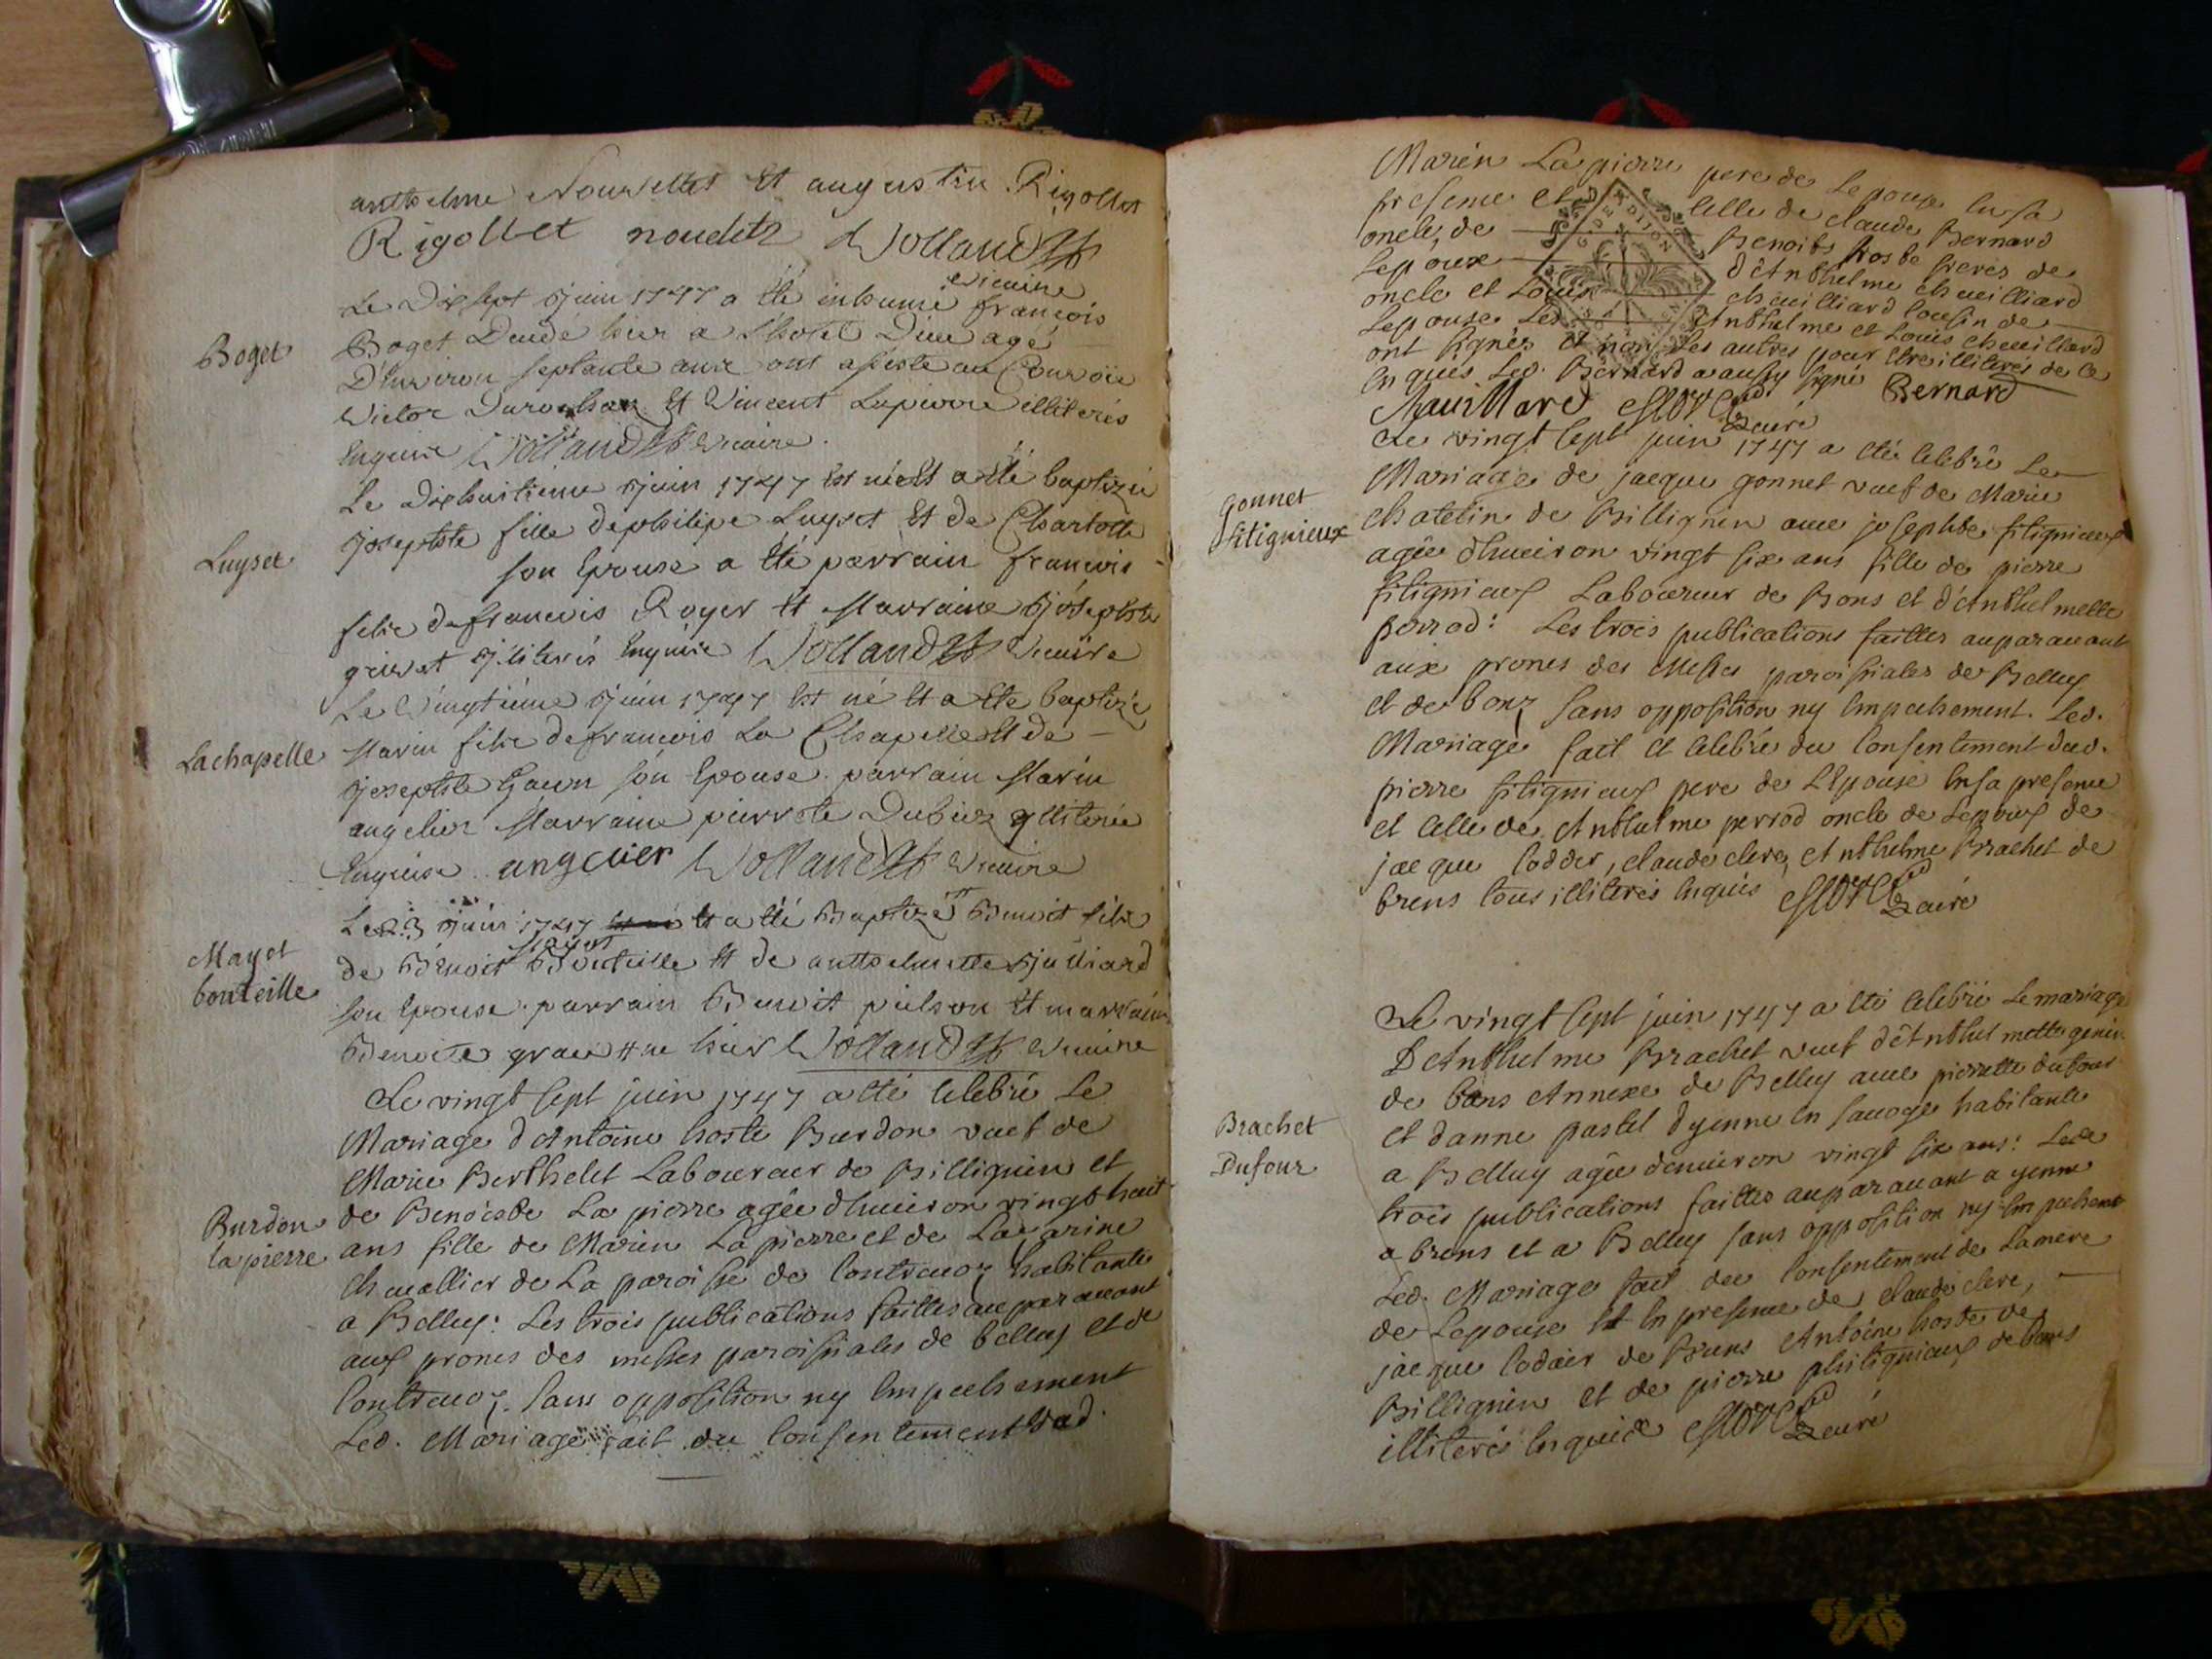 anthelme Nouvellet Et augustin Rigollet
Rigollet noudetz Vollandtz
vicaire
Le Dixsept juin 1747 a été inhumé françois
Boget
Boget Decedé hier a l'hotel Dieu agé
D'environ septante ans ont assisté au Convoie
Victor Et Vincent Lapierre illiterés
Enquire Vollandtz vicaire.
Le Dixhuitieme juin 1747 est née Et a été baptizée
Luyset
josephte fille de philipe Luyset Et de Charlotte
son Epouse a été parrain francois
fils de francois Royer Et Marraine josephte
grivet illiterés Enquire Vollandtz vicaire
Le Vingtième juin 1747 est né Et a été baptizé
Lachapelle
Marin fils de francois La Chapelle Et de
josephte son Epouse. parrain Marin
angelier Marraine pierrote Dubiez illiterée
Enquise angelier Vollandtz vicaire
Le 23 juin 1747 Et a été Baptizé Benoit fils
Mayet
bouteille
de Benoit Bouteille Et de anthelmette juilliard
son Epouse. parrain Benoit pielson Et marraine
Benoite ne hier Vollandtz vicaire
Le vingt sept juin 1747 a été celebré Le
Mariage d'Antoine hoste Burdon veuf de
Marie Berthelet Laboureur de Billignin et
Burdon
lapierre
de Benoiste La pierre agée d'hueiron vingt huit
ans fille de Marin La pierre et de Catarine
chevallier de La paroisse de Contrevoz habitante
a Belley: Les trois publications faittes auparavant
aux prones des messes paroissiales de belley et de
Contrevoz. sans opposition ny Empechement
Led. Mariage fait du consentement dud.
Marin La pierre pere de Lepouse En sa
presence et celle de claude Bernard
oncle, de Benoits hoste freres de
Lepoux d'Anthelme cheuilliard
oncle et Louis cheuilliard cousin de
Lepouse Led. Anthelme et Louis cheuillard
ont signés et non Les autres pour être illiterés de ce
Enquis Led. Bernard a aussy signé Bernard
Chauillard curé
Le vingt sept juin 1747 a été celebré Le
Mariage de jacque gonnet veuf de Marie
Gonnet
fitignieux
chatelin de Billignin avec josephte fitignieux
agée d'hueiron vingt six ans fille de pierre
fitignieux Laboureur de Bons et d'Anthelmette
perrod: Les trois publications faittes auparavant
aux prones des Messes paroissiales de Belley
et de bonz sans opposition ny Empechement. Led.
Mariage fait et celebré du consentement dud.
pierre fitignieux pere de L'Epouse En sa presence
et celle de Anthelme perrod oncle de Lepoux de
jacque codder, claude clerc, Anthelme Brachet de
brens tous illiterés Enquis curé
Le vingt sept juin 1747 a été celebré Le mariage
D'Anthelme Brachet veuf d'Anthelmette genin
de bons Annexe de Belley avec pierrette dufour
Brachet
Dufour
et d'anne pastel d'yenne En savoye habitante
a Belley agée d'enuiron vingt six ans: Les
trois publications faittes auparavant a yenne
a brens et a Belley sans opposition ny Empechement
Led. Mariage fait du consentement de La mere
de Lepouse Et En presence de claude clerc,
jacque codair de Brens Antoine hoste de
Billignin et de pierre phitignieux de bons
illiterés Enquis curé